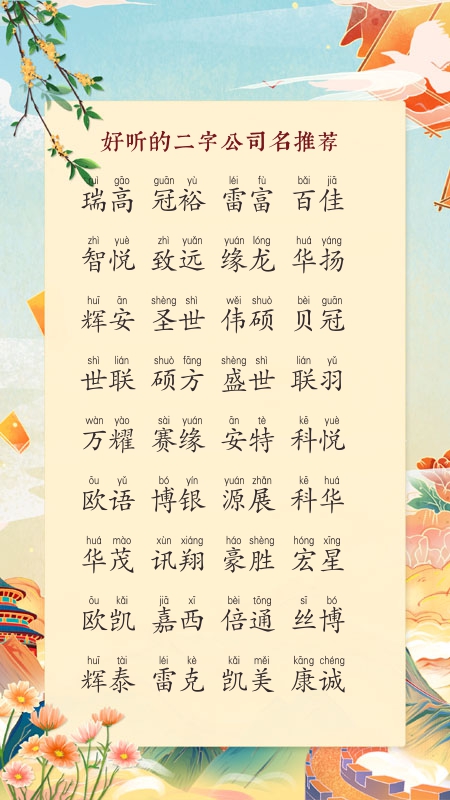 好听的二字公司名推荐
ruì gāo guān yù léi fù bǎi jiā
瑞高 冠裕 雷富 百佳
zhì yuè zhì yuǎn yuán lóng huá yáng
智悦 致远 缘龙 华扬
huī ān shèng shì wěi shuò bèi guān
辉安 圣世 伟硕 贝冠
shì lián shuò fāng shèng shì lián yǔ
世联 硕方 盛世 联羽
wàn yào sài yuán ān tè kē yuè
万耀 赛缘 安特 科悦
ōu yǔ bó yín yuán zhǎn kē huá
欧语 博银 源展 科华
huá mào xùn xiáng háo shèng hóng xīng
华茂 讯翔 豪胜 宏星
ōu kǎi jiā xī bèi tōng sī bó
欧凯 嘉西 倍通 丝博
huī tài léi kè kǎi měi kāng chéng
辉泰 雷克 凯美 康诚